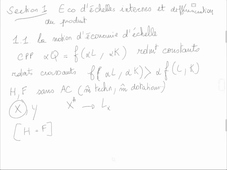 Section 1 Eco d'échelles internes et différenciation
du produit
1.1 la notion d'économie d'échelle
CPP αQ = f(αL, αK) rdmt constants
rdmts croissants f(αL, αK) > αf(L, K)
H, F sans AC (m̂ techno, m̂ dotations)
X, Y X* → Lx
[H = F]